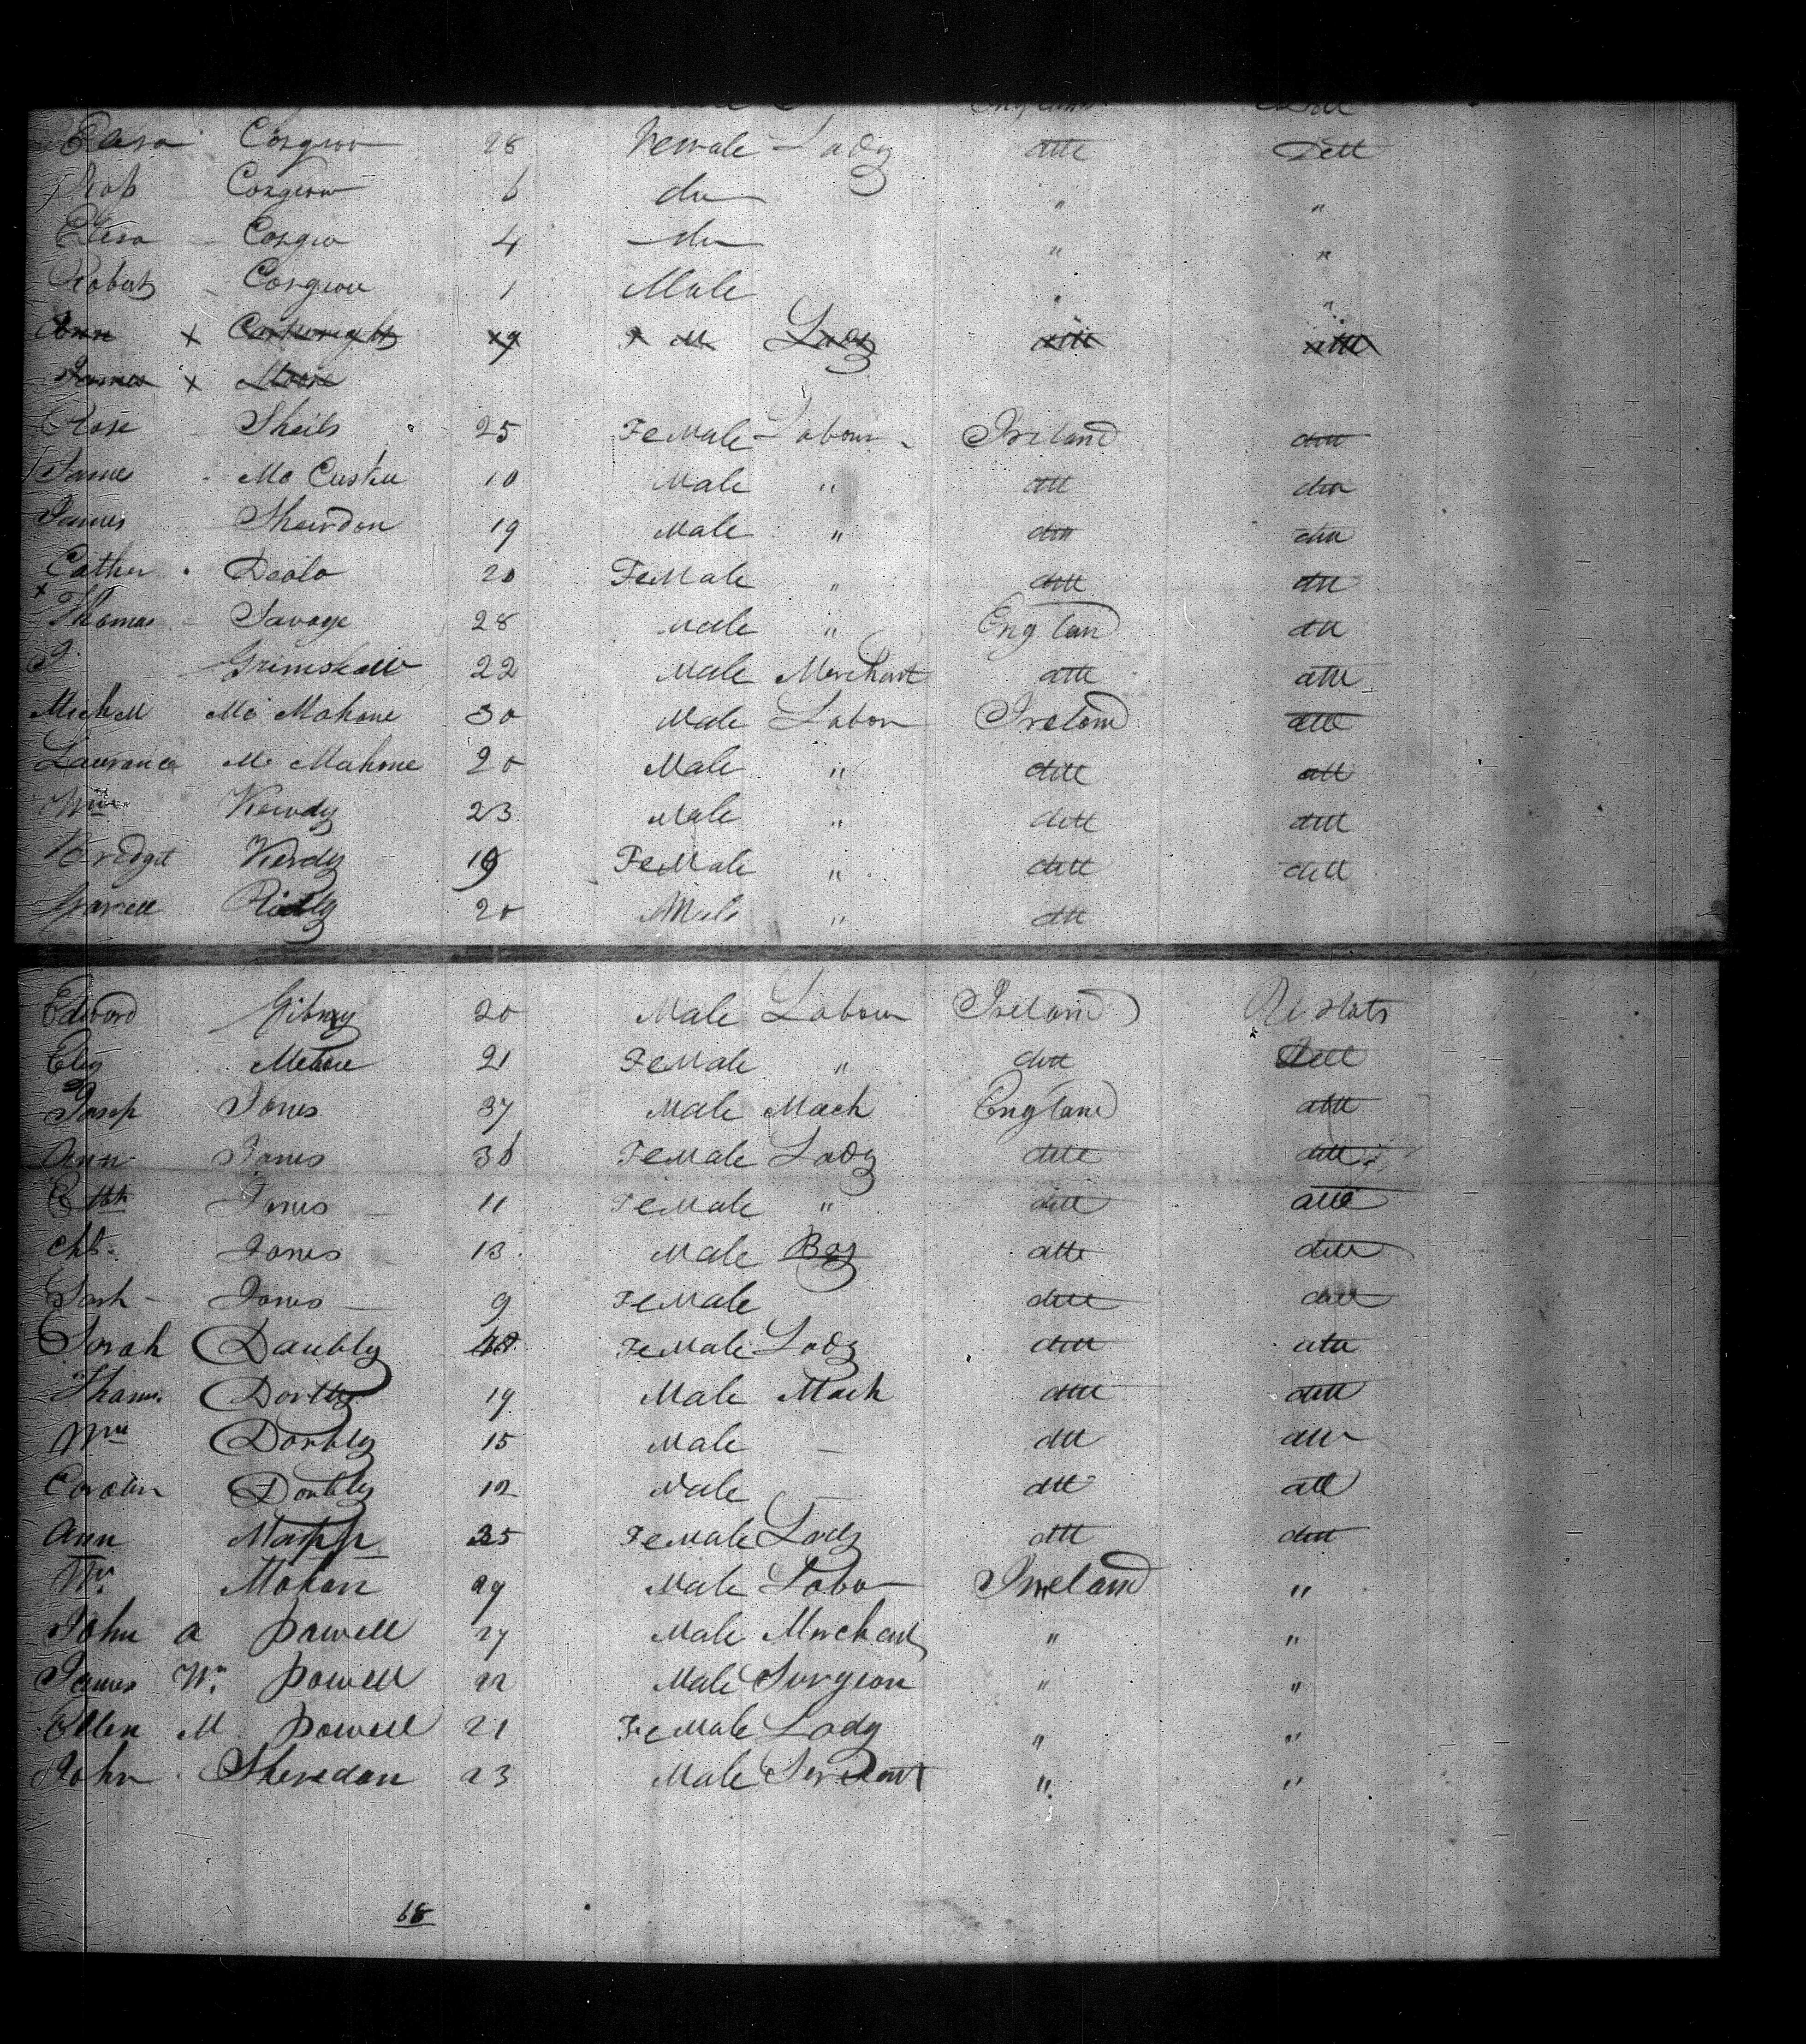 Cosgrove 28 Female Lady ditt Ditt
Cosgrove 6 do " "
Eliza Cosgro 4 do " "
Robert Cosgrove 1 Male " "
Ann x Cartwright 19 Lady ditt ditt
James x Moore
Rose Sheils 25 FeMale Labour Ireland ditt
James Mc Cusker 10 Male " ditt ditt
James Sheirdon 19 Male " ditt ditt
Cather 20 FeMale " ditt ditt
Thomas Savage 28 Male " England ditt
Grimshaw 22 Male Merchant ditt ditt
Michell Mc Mahone 30 Male Labor Ireland ditt
Laurance Mc Mahone 20 Male " ditt ditt
Wm 23 Male " ditt ditt
Bridget 19 FeMale " ditt ditt
20 Male " ditt
Edward Gibney 20 Male Labour Ireland U States
21 FeMale " ditt Ditt
Joseph Jones 37 Male Mach England ditt
Ann Jones 36 FeMale Lady ditt ditt
Jones 11 FeMale " ditt ditt
Jones 13 Male Boy ditt ditt
Sarh Jones 9 FeMale ditt ditt
Sarah Daubly FeMale Lady ditt ditt
Thams 19 Male Mach ditt ditt
Wm Doubly 15 Male ditt ditt
Carolin Doubly 12 Male ditt ditt
Ann Mapp 35 FeMale Lady ditt ditt
Mahan 29 Male Labor Ireland "
John a powell 27 Male Merchant " "
James Wm powell 22 Male Surgeon " "
Ellen M powell 21 FeMale Lady " "
John Sheredan 23 Male Servant " "
68